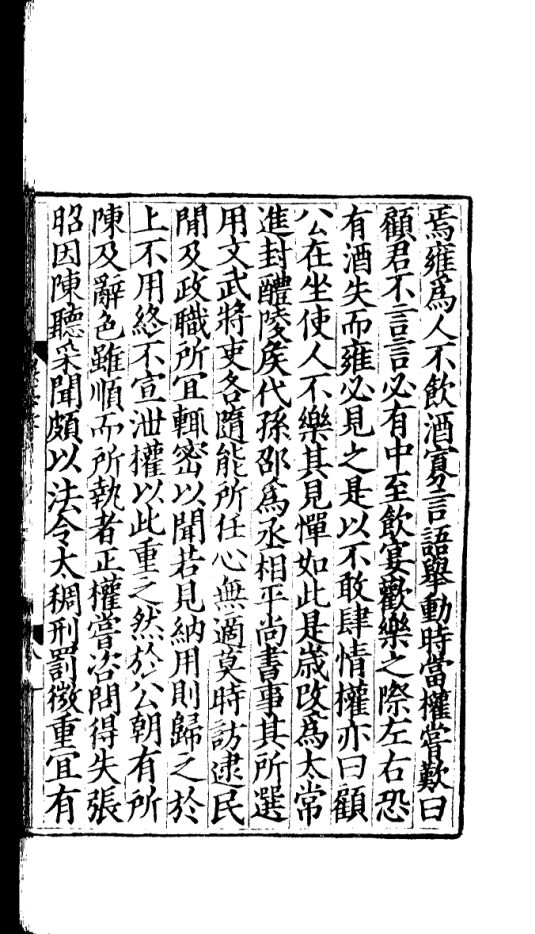 焉雍為人不飲酒寡言語舉動時當權嘗歎曰
顧君不言言必有中至飲宴歡樂之際左右恐
有酒失而雍必見之是以不敢肆情權亦曰顧
公在坐使人不樂其見憚如此是歲改為太常
進封醴陵矦代孫邵為丞相平尚書事其所選
用文武將吏各隨能所任心無適莫時訪逮民
閒及政職所宜輒密以聞若見納用則歸之於
上不用終不宣泄權以此重之然於公朝有所
陳及辭色雖順而所執者正權嘗咨問得失張
昭因陳聽采聞頗以法令太稠刑罰微重宜有